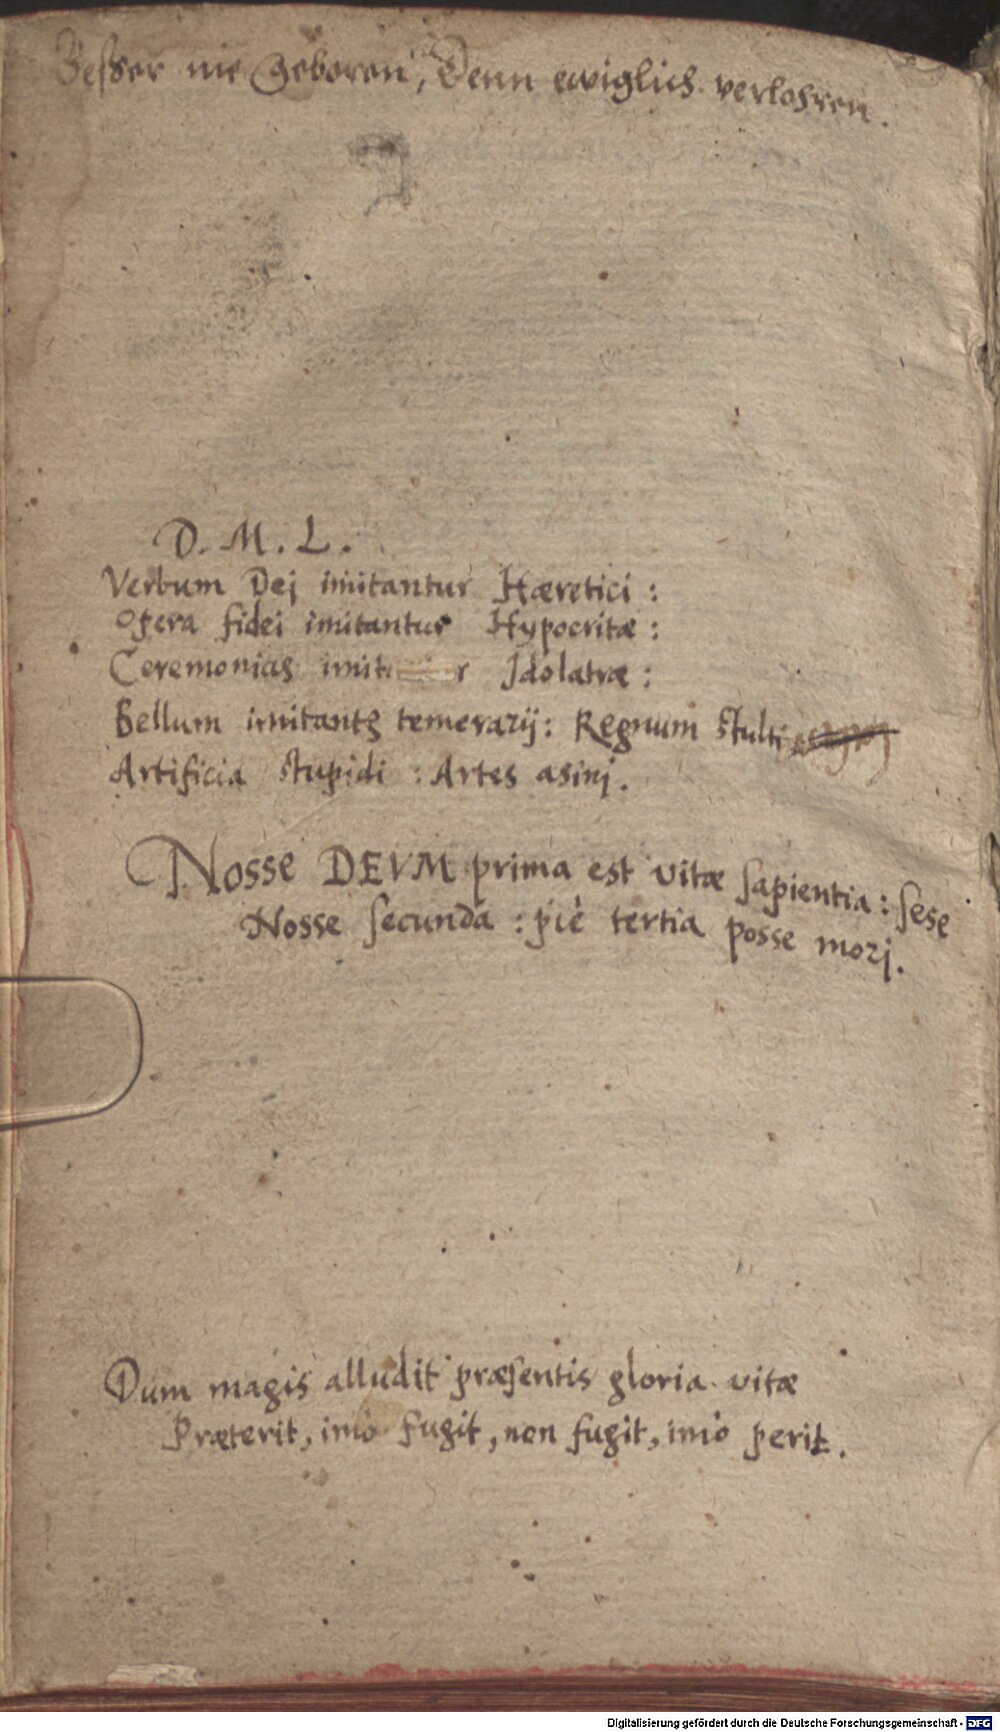 Besser nie Geboren, Denn ewiglich verlohren.
D. M. L.
Verbum Dej imitantur Hæretici:
Opera fidei imitantur Hypocritæ:
Ceremonias Idolatræ:
Bellum imitantꝫ temerarij: Regnum stulti
Artificia stupidi: Artes asinj.
Nosse DEVM prima est vitæ sapientia: sese
Nosse secunda: piè tertia posse morj.
Dum magis alludit præsentis gloria vitæ
Præterit, imò fugit, non fugit, imò perit.
Digitalisierung gefördert durch die Deutsche Forschungsgemeinschaft - DFG